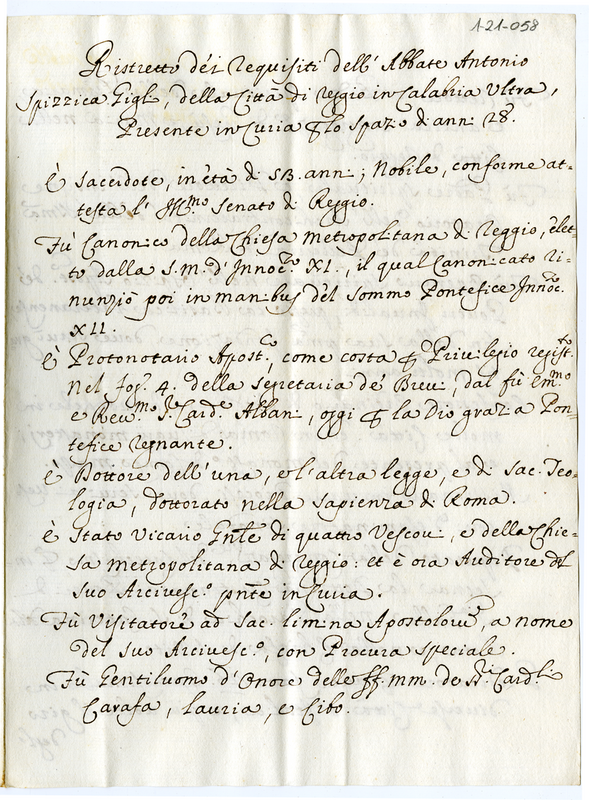 1-21-058
Ristretto déi requisiti dell' Abbate Antonio
Spizzica Gigl., della Città di reggio in Calabria Ultra,
Presente in Curia p lo spaz.o di anni 28.
È sacerdote, in età di 53. anni; Nobile, conforme at=
testa l' Ill.mo senato di Reggio.
Fù Canonico della Chiesa metropolitana di Reggio, elet=
to dalla S.M. d'Innoc.zo XI., il qual Canonicato ri=
nunziò poi in manibus dél sommo Pontefice Innoc.
XII.
È Protonotario Apost.co, come costa p Privilegio regist.to
nel fog. 4. della segretaria dé Brevi, dal fù em.mo
e Rev.mo S.r Card.e Albani, oggi p la Dio graz.a Pon=
tefice regnante.
È Dottore dell'una, e l'altra legge, e di sac. Teo=
logia, dottorato nella sapienza di Roma.
È stato Vicario Gnle di quattro Vescovi, e della Chie=
sa metropolitana di Reggio: et è ora Auditore dl
suo Arcivesc.o pnte in Curia.
Fù Visitatore ad sac. limina Apostolorum, a nome
del suo Arcivesc.o, con Procura speciale.
Fù Gentiluomo d'Onore delle ff. mm. de SS.ri Card.li
Carafa, lauria, e Cibo.